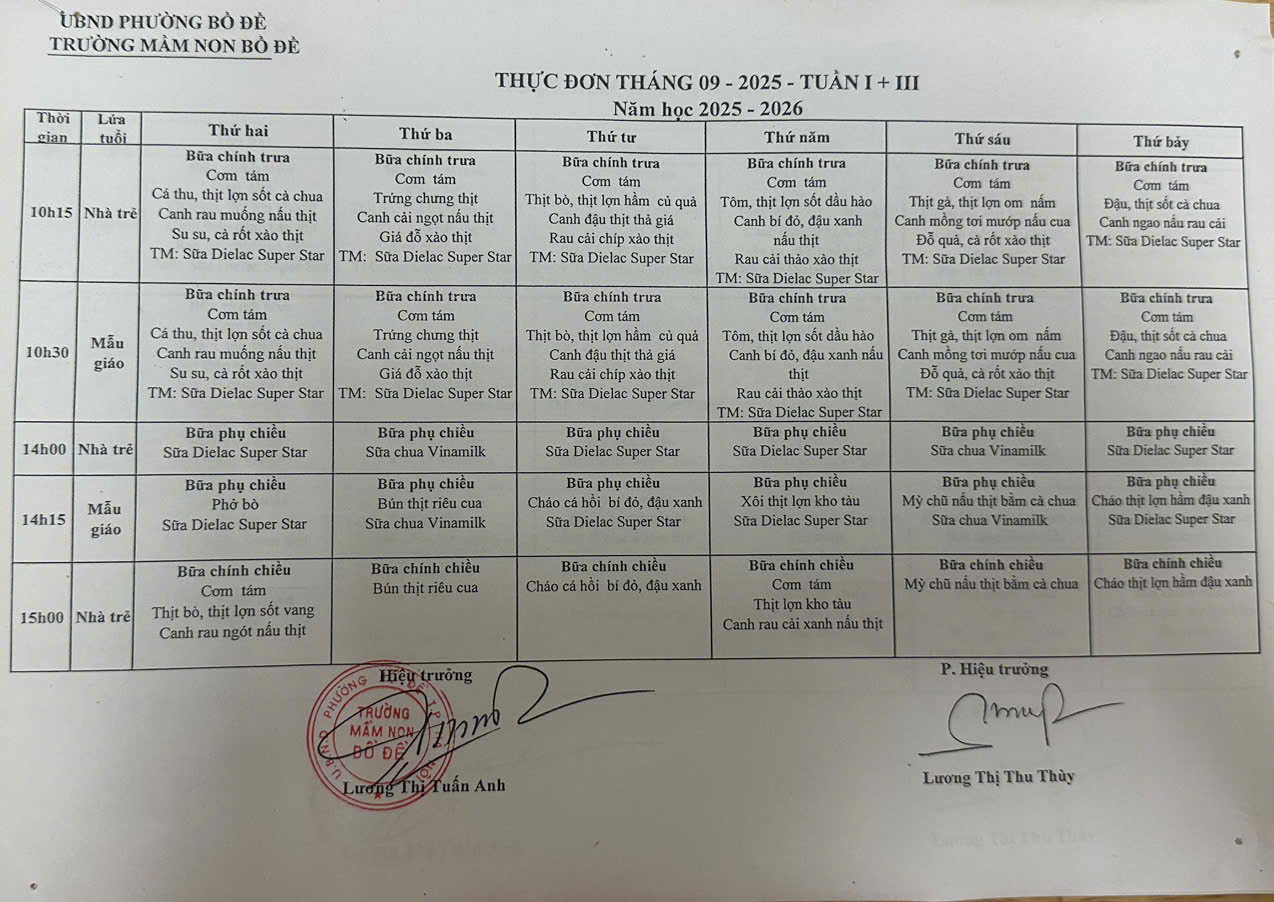 UBND PHƯỜNG BỒ ĐỀ
TRƯỜNG MẦM NON BỒ ĐỀ
THỰC ĐƠN THÁNG 09 - 2025 - TUẦN I + III
Năm học 2025 - 2026
Thời gian
Lứa tuổi
Thứ hai
Thứ ba
Thứ tư
Thứ năm
Thứ sáu
Thứ bảy
10h15
Nhà trẻ
Bữa chính trưa
Cơm tám
Cá thu, thịt lợn sốt cà chua
Canh rau muống nấu thịt
Su su, cà rốt xào thịt
TM: Sữa Dielac Super Star
Bữa chính trưa
Cơm tám
Trứng chưng thịt
Canh cải ngọt nấu thịt
Giá đỗ xào thịt
TM: Sữa Dielac Super Star
Bữa chính trưa
Cơm tám
Thịt bò, thịt lợn hầm củ quả
Canh đậu thịt thả giá
Rau cải chíp xào thịt
TM: Sữa Dielac Super Star
Bữa chính trưa
Cơm tám
Tôm, thịt lợn sốt dầu hào
Canh bí đỏ, đậu xanh
nấu thịt
Rau cải thảo xào thịt
TM: Sữa Dielac Super Star
Bữa chính trưa
Cơm tám
Thịt gà, thịt lợn om nấm
Canh mồng tơi mướp nấu cua
Đỗ quả, cà rốt xào thịt
TM: Sữa Dielac Super Star
Bữa chính trưa
Cơm tám
Đậu, thịt sốt cà chua
Canh ngao nấu rau cải
TM: Sữa Dielac Super Star
10h30
Mẫu
giáo
Bữa chính trưa
Cơm tám
Cá thu, thịt lợn sốt cà chua
Canh rau muống nấu thịt
Su su, cà rốt xào thịt
TM: Sữa Dielac Super Star
Bữa chính trưa
Cơm tám
Trứng chưng thịt
Canh cải ngọt nấu thịt
Giá đỗ xào thịt
TM: Sữa Dielac Super Star
Bữa chính trưa
Cơm tám
Thịt bò, thịt lợn hầm củ quả
Canh đậu thịt thả giá
Rau cải chíp xào thịt
TM: Sữa Dielac Super Star
Bữa chính trưa
Cơm tám
Tôm, thịt lợn sốt dầu hào
Canh bí đỏ, đậu xanh nấu
thịt
Rau cải thảo xào thịt
TM: Sữa Dielac Super Star
Bữa chính trưa
Cơm tám
Thịt gà, thịt lợn om nấm
Canh mồng tơi mướp nấu cua
Đỗ quả, cà rốt xào thịt
TM: Sữa Dielac Super Star
Bữa chính trưa
Cơm tám
Đậu, thịt sốt cà chua
Canh ngao nấu rau cải
TM: Sữa Dielac Super Star
14h00
Nhà trẻ
Bữa phụ chiều
Sữa Dielac Super Star
Bữa phụ chiều
Sữa chua Vinamilk
Bữa phụ chiều
Sữa Dielac Super Star
Bữa phụ chiều
Sữa Dielac Super Star
Bữa phụ chiều
Sữa chua Vinamilk
Bữa phụ chiều
Sữa Dielac Super Star
14h15
Mẫu
giáo
Bữa phụ chiều
Phở bò
Sữa Dielac Super Star
Bữa phụ chiều
Bún thịt riêu cua
Sữa chua Vinamilk
Bữa phụ chiều
Cháo cá hồi bí đỏ, đậu xanh
Sữa Dielac Super Star
Bữa phụ chiều
Xôi thịt lợn kho tàu
Sữa Dielac Super Star
Bữa phụ chiều
Mỳ chũ nấu thịt bằm cà chua
Sữa chua Vinamilk
Bữa phụ chiều
Cháo thịt lợn hầm đậu xanh
Sữa Dielac Super Star
15h00
Nhà trẻ
Bữa chính chiều
Cơm tám
Thịt bò, thịt lợn sốt vang
Canh rau ngót nấu thịt
Bữa chính chiều
Bún thịt riêu cua
Bữa chính chiều
Cháo cá hồi bí đỏ, đậu xanh
Bữa chính chiều
Cơm tám
Thịt lợn kho tàu
Canh rau cải xanh nấu thịt
Bữa chính chiều
Mỳ chũ nấu thịt bằm cà chua
Bữa chính chiều
Cháo thịt lợn hầm đậu xanh
Hiệu trưởng
P. Hiệu trưởng
U.B.N.D PHƯỜNG
TRƯỜNG
MẦM NON
BỒ ĐỀ
Lương Thị Tuấn Anh
Lương Thị Thu Thùy